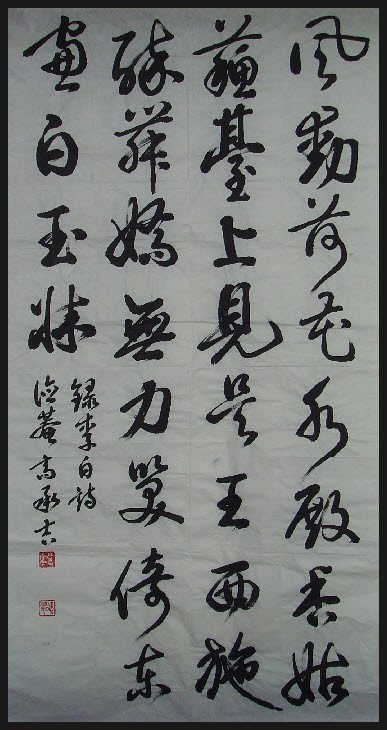 風動荷花水殿香姑
蘇臺上見吳王西施
醉舞嬌無力笑倚東
窗白玉牀
錄李白詩
菴高承吉